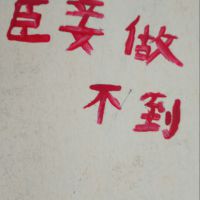 臣妾做
不到